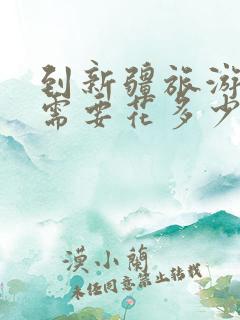 到新疆旅游
需要花多少
漠小蘭
未经同意禁止转载